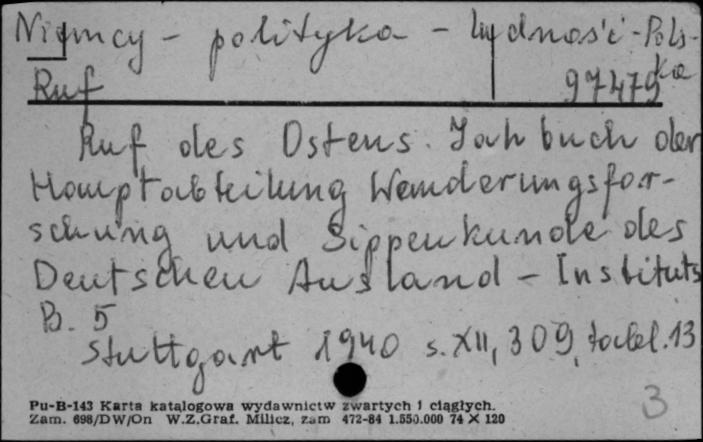 Niemcy - polityka - ludność - Pols-
ka
Ruf 97479
Ruf des Ostens. Jahrbuch der
Hauptabteilung Wanderungsfor-
schung und Sippenkunde des
Deutschen Ausland - Instituts
B. 5
Stuttgart 1940 s. XII, 309, tabel. 13
Pu-B-143 Karta katalogowa wydawnictw zwartych i ciągłych.
Zam. 698/DW/On W.Z.Graf. Milicz, zam 472-84 1.550.000 74 X 120
3